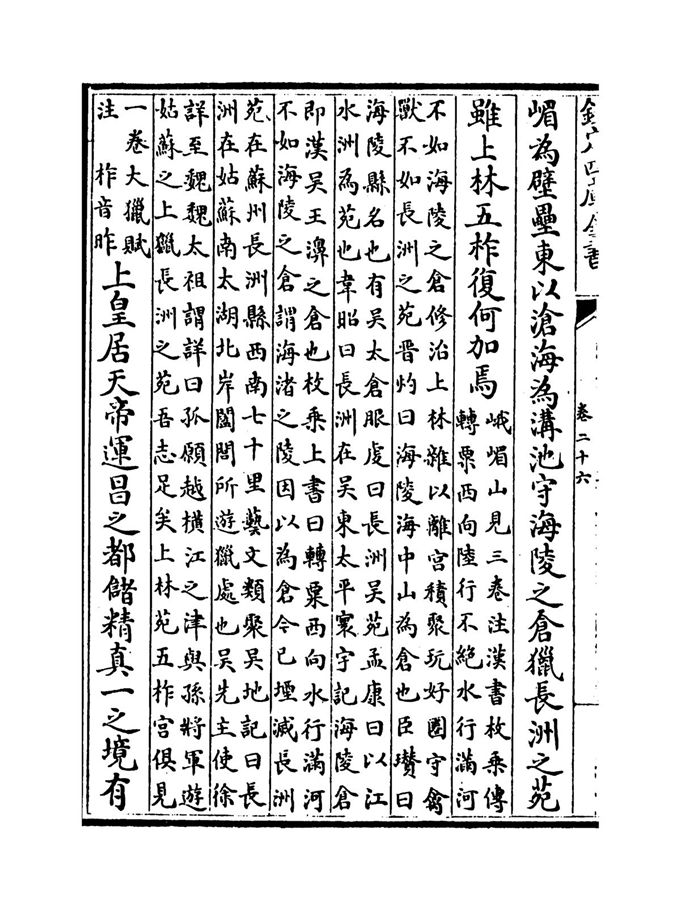 欽定四庫全書
卷二十六
嵋為壁壘東以滄海為溝池守海陵之倉獵長洲之苑
雖上林五柞復何加焉
峨嵋山見三卷注漢書枚乘傳
轉粟西向陸行不絶水行滿河
不如海陵之倉修治上林雜以離宮積聚玩好圈守禽
獸不如長洲之苑晉灼曰海陵海中山為倉也臣瓚曰
海陵縣名也有吳太倉服虔曰長洲吳苑孟康曰以江
水洲為苑也韋昭曰長洲在吳東太平寰宇記海陵倉
即漢吳王濞之倉也枚乘上書曰轉粟西向水行滿河
不如海陵之倉謂海渚之陵因以為倉今已堙滅長洲
苑在蘇州長洲縣西南七十里藝文類聚吳地記曰長
洲在姑蘇南太湖北岸闔閭所遊獵處也吳先主使徐
詳至魏魏太祖謂詳曰孤願越橫江之津與孫將軍遊
姑蘇之上獵長洲之苑吾志足矣上林苑五柞宮俱見
一卷大獵賦
注 柞音昨
上皇居天帝運昌之都儲精真一之境有